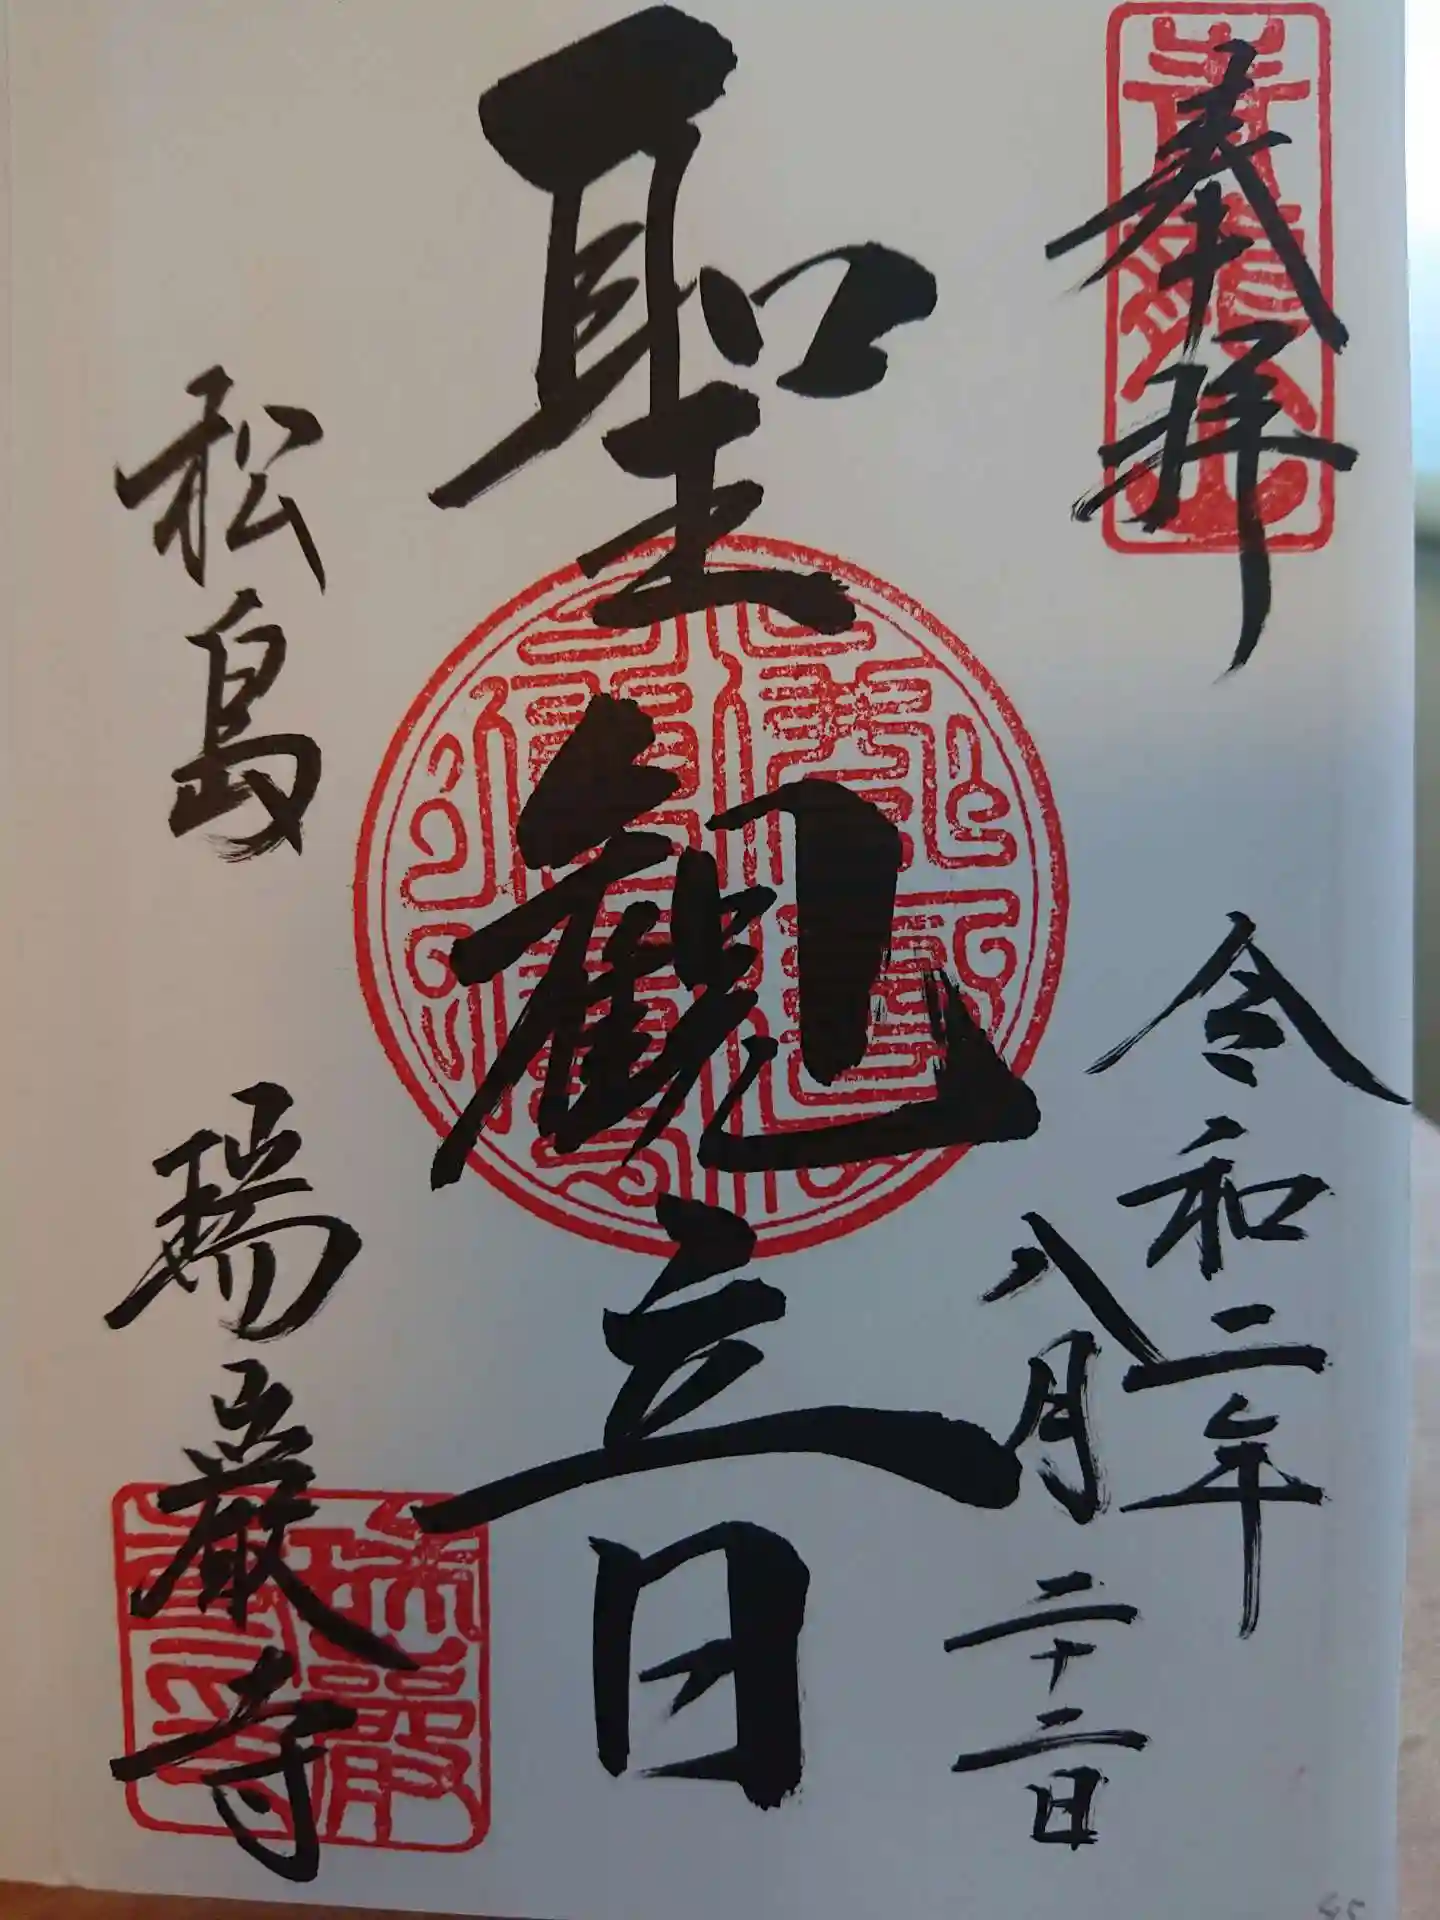 奉拝
令和二年
八月二十二日
聖観音
松島 瑞巌寺
青龍山